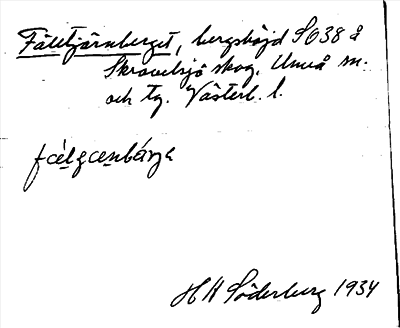 Fältjärnberget, bergshöjd SO38 å
Skravelsjö skog. Umeå sn.
och tg. Västerb. l.
H H Söderberg 1934